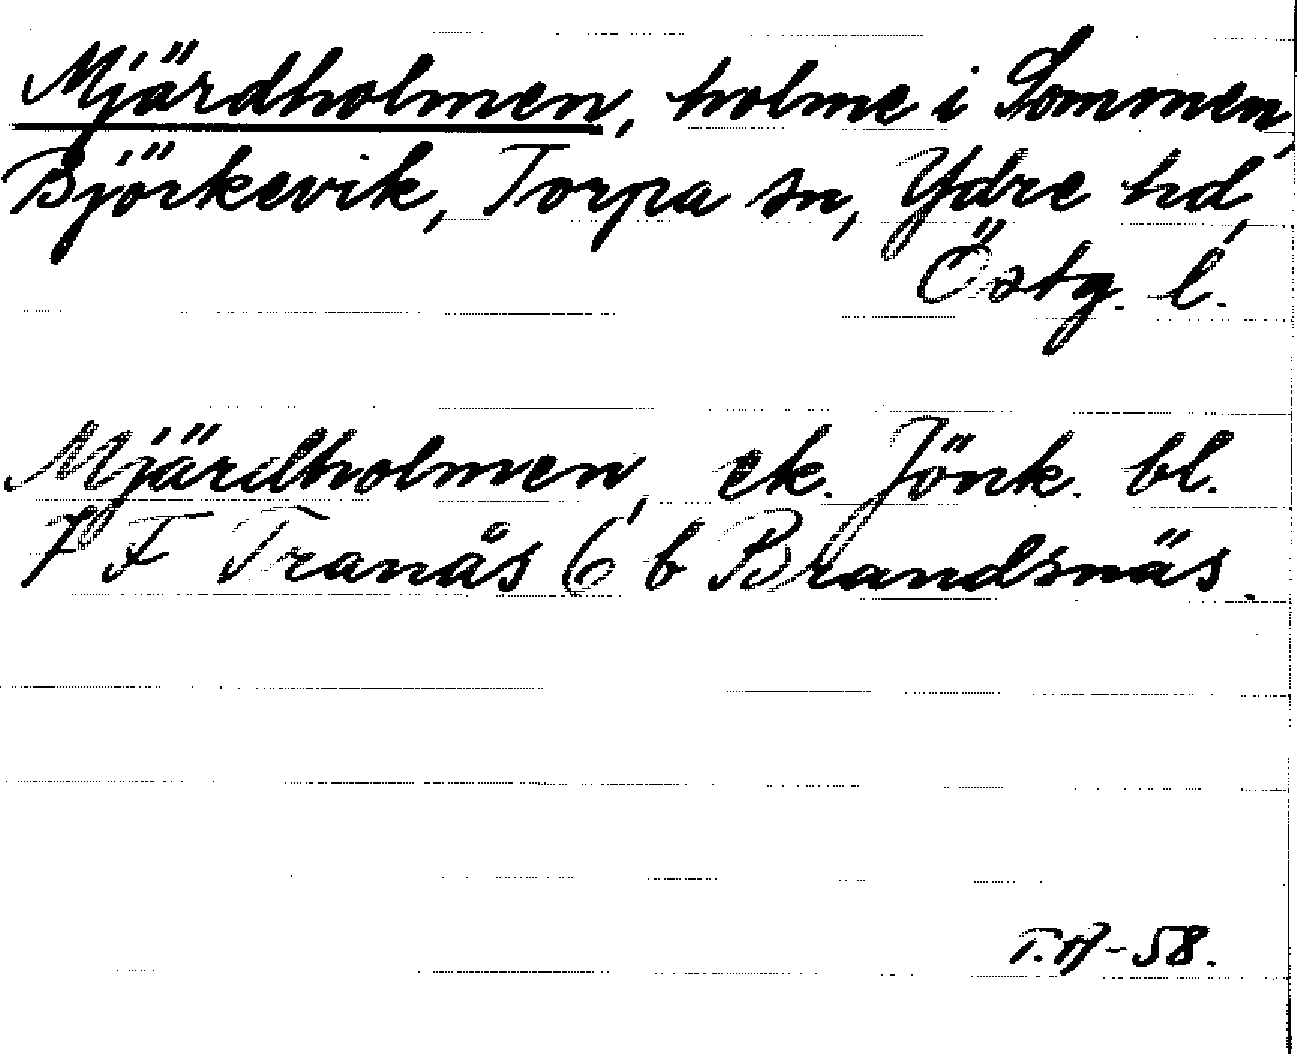 Mjärdholmen, holme i Sommen,
Björkevik, Torpa sn, Ydre hd,
Östg. l.
Mjärdholmen, ek. Jönk. bl.
7 F Tranås 6 b Brandsnäs.
T.A-58.